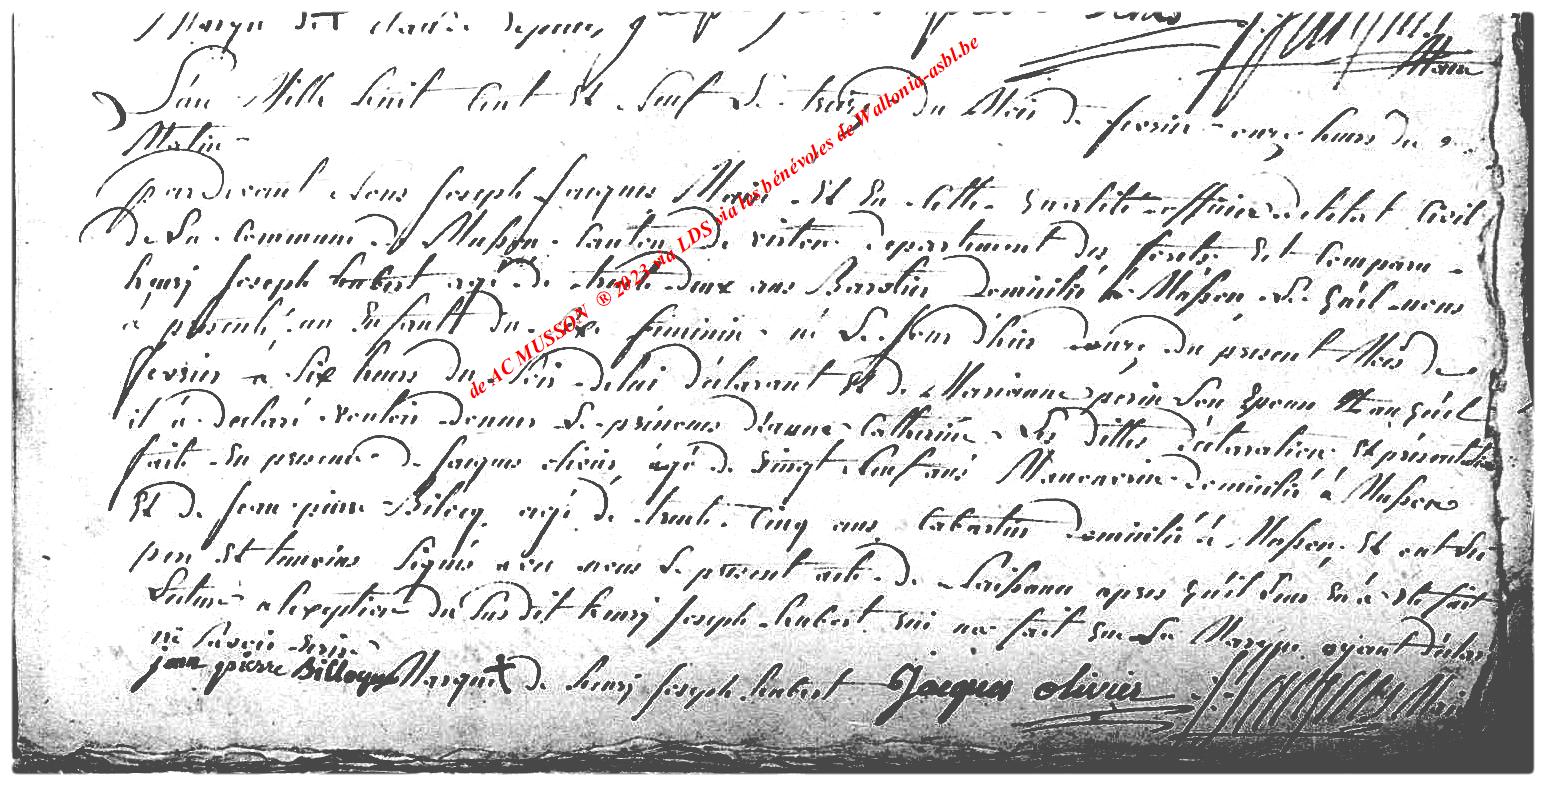 L'an Mille huit Cent Et Neuf Le treize du Mois de fevrier onze heurs du
Matin
pardevant Nous Joseph Jacques Maire Et En Cette Qualité officier deletat Civil
de La Commune de Musson Canton de virton departement des forets Est Comparu
henrj Joseph hubert agé de trente deux ans Domicilié à Musson Le Quel nous
a presenté un Enfant du Sexe feminin né Le Jour d'hier douze du present Mois de
fevrier à Six heurs du Soir de lui declarant Et de Marianne perin Son Epouse Et au quel
il à declaré vouloir donner Le prénoms Jeanne Catherine Les dittes declaration Et présentation
faite En presence de Jacques olivier agé de vingt Neuf ans domicilié à Musson
Et de Jean pierre Bilocq agé de trente Cinq ans Cabartier domicilié à Musson Et ont Les
per Et temoins Signés avec nous Le present acte de Naissance apres Qu'il Leur En à Eté fait
Lecture a lexeption du Susdit henrj Joseph hubert qui na fait que Sa Marque ayant declaré
ne Savoir Ecrire
jean pierre Billoque Marque de henrj Joseph hubert Jacques olivier
de AC MUSSON ® 2023 via LDS via les bénévoles de Wallonia-asbl.be